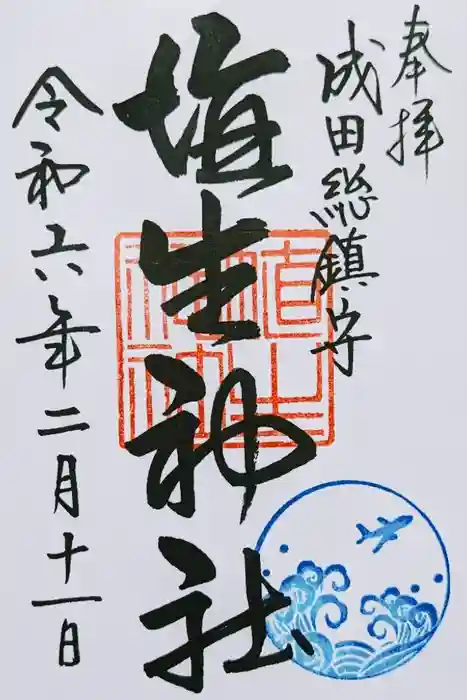 奉拝
成田総鎮守
埴生神社
令和六年二月十一日